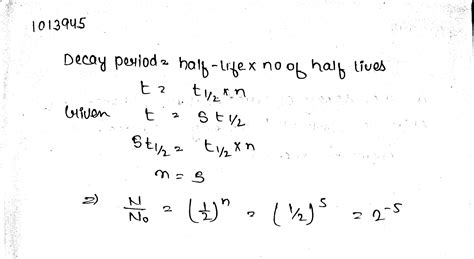 1013945
Decay period = half-life x no of half lives
t = t1/2 x n
Given t = 5 t1/2
5 t1/2 = t1/2 x n
n = 5
⇒ N/No = (1/2)^n = (1/2)^5 = 2^-5